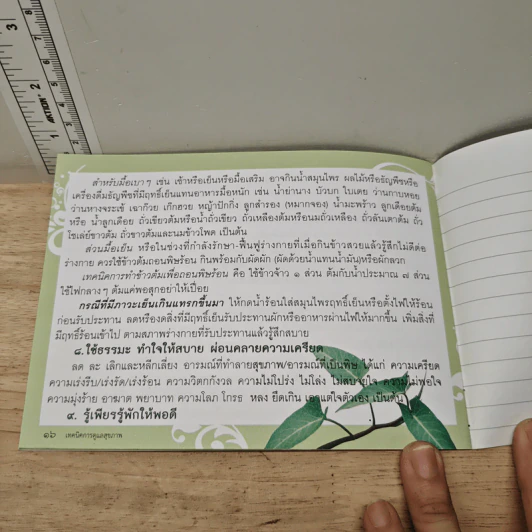 สำหรับมื้อเบา ๆ เช่น เช้าหรือเย็นหรือมื้อเสริม อาจกินน้ำสมุนไพร ผลไม้หรือธัญพืชหรือ
เครื่องดื่มธัญพืชที่มีฤทธิ์เย็นแทนอาหารมื้อหนัก เช่น น้ำย่านาง บัวบก ใบเตย ว่านกาบหอย
ว่านหางจระเข้ เฉาก๊วย เก๊กฮวย หญ้าปักกิ่ง ลูกสำรอง (หมากจอง) น้ำมะพร้าว ลูกเดือยต้ม
หรือ น้ำลูกเดือย ถั่วเขียวต้มหรือน้ำถั่วเขียว ถั่วเหลืองต้มหรือนมถั่วเหลือง ถั่วลันเตาต้ม ถั่ว
โชเล่ย์ขาวต้ม ถั่วขาวต้มและนมข้าวโพด เป็นต้น
ส่วนมื้อเย็น หรือในช่วงที่กำลังรักษา-ฟื้นฟูร่างกายที่เมื่อกินข้าวสวยแล้วรู้สึกไม่ดีต่อ
ร่างกาย ควรใช้ข้าวต้มถอนพิษร้อน กินพร้อมกับผัดผัก (ผัดด้วยน้ำแทนน้ำมัน)หรือผักลวก
เทคนิคการทำข้าวต้มเพื่อถอนพิษร้อน คือ ใช้ข้าวจ้าว ๑ ส่วน ต้มกับน้ำประมาณ ๗ ส่วน
ใช้ไฟกลางๆ ต้มแค่พอสุกอย่าให้เปื่อย
กรณีที่มีภาวะเย็นเกินแทรกขึ้นมา ให้กดน้ำร้อนใส่สมุนไพรฤทธิ์เย็นหรือตั้งไฟให้ร้อน
ก่อนรับประทาน ลดหรืองดสิ่งที่มีฤทธิ์เย็นรับประทานผักหรืออาหารผ่านไฟให้มากขึ้น เพิ่มสิ่งที่
มีฤทธิ์ร้อนเข้าไป ตามสภาพร่างกายที่รับประทานแล้วรู้สึกสบาย
๘.ใช้ธรรมะ ทำใจให้สบาย ผ่อนคลายความเครียด
ลด ละ เลิกและหลีกเลี่ยง อารมณ์ที่ทำลายสุขภาพ/อารมณ์ที่เป็นพิษ ได้แก่ ความเครียด
ความเร่งรีบ/เร่งรัด/เร่งร้อน ความวิตกกังวล ความไม่โปร่ง ไม่โล่ง ไม่สบายใจ ความไม่พอใจ
ความมุ่งร้าย อาฆาต พยาบาท ความโลภ โกรธ หลง ยึดเกิน เอาแต่ใจตัวเอง เป็นต้น
๙. รู้เพียรรู้พักให้พอดี
๑๖ เทคนิคการดูแลสุขภาพ
3
2
1